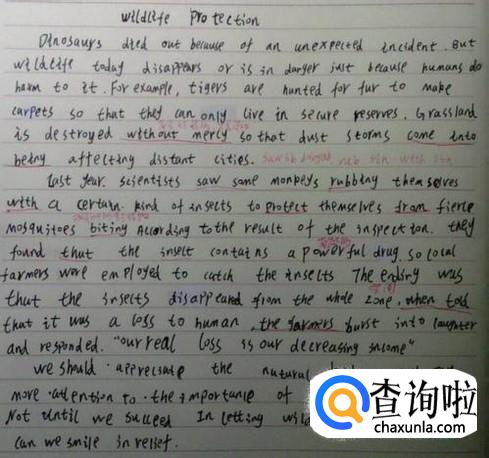 wildlife Protection
Dinosaurs died out because of an unexpected incident. But
wildlife today disappears or is in danger just because humans do
harm to it. For example, tigers are hunted for fur to make
carpets so that they can only live in secure reserves. Grassland
is destroyed without mercy so that dust storms come into
being affecting distant cities.
Last year. scientists saw some monkeys rubbing themselves
with a certain kind of insects to protect themselves from fierce
mosquitoes biting According to the result of the inspection. they
found that the insect contains a powerful drug. so local
farmers were employed to catch the insects The ending was
that the insects disappeared from the whole zone. when told
that it was a loss to human, the farmers burst into laughter
and responded. "our real loss is our decreasing income"
we should appreciate the natural
more attention to the importance of
Not until we succeed In letting
can we smile in relief.
查询啦
chaxunla.com